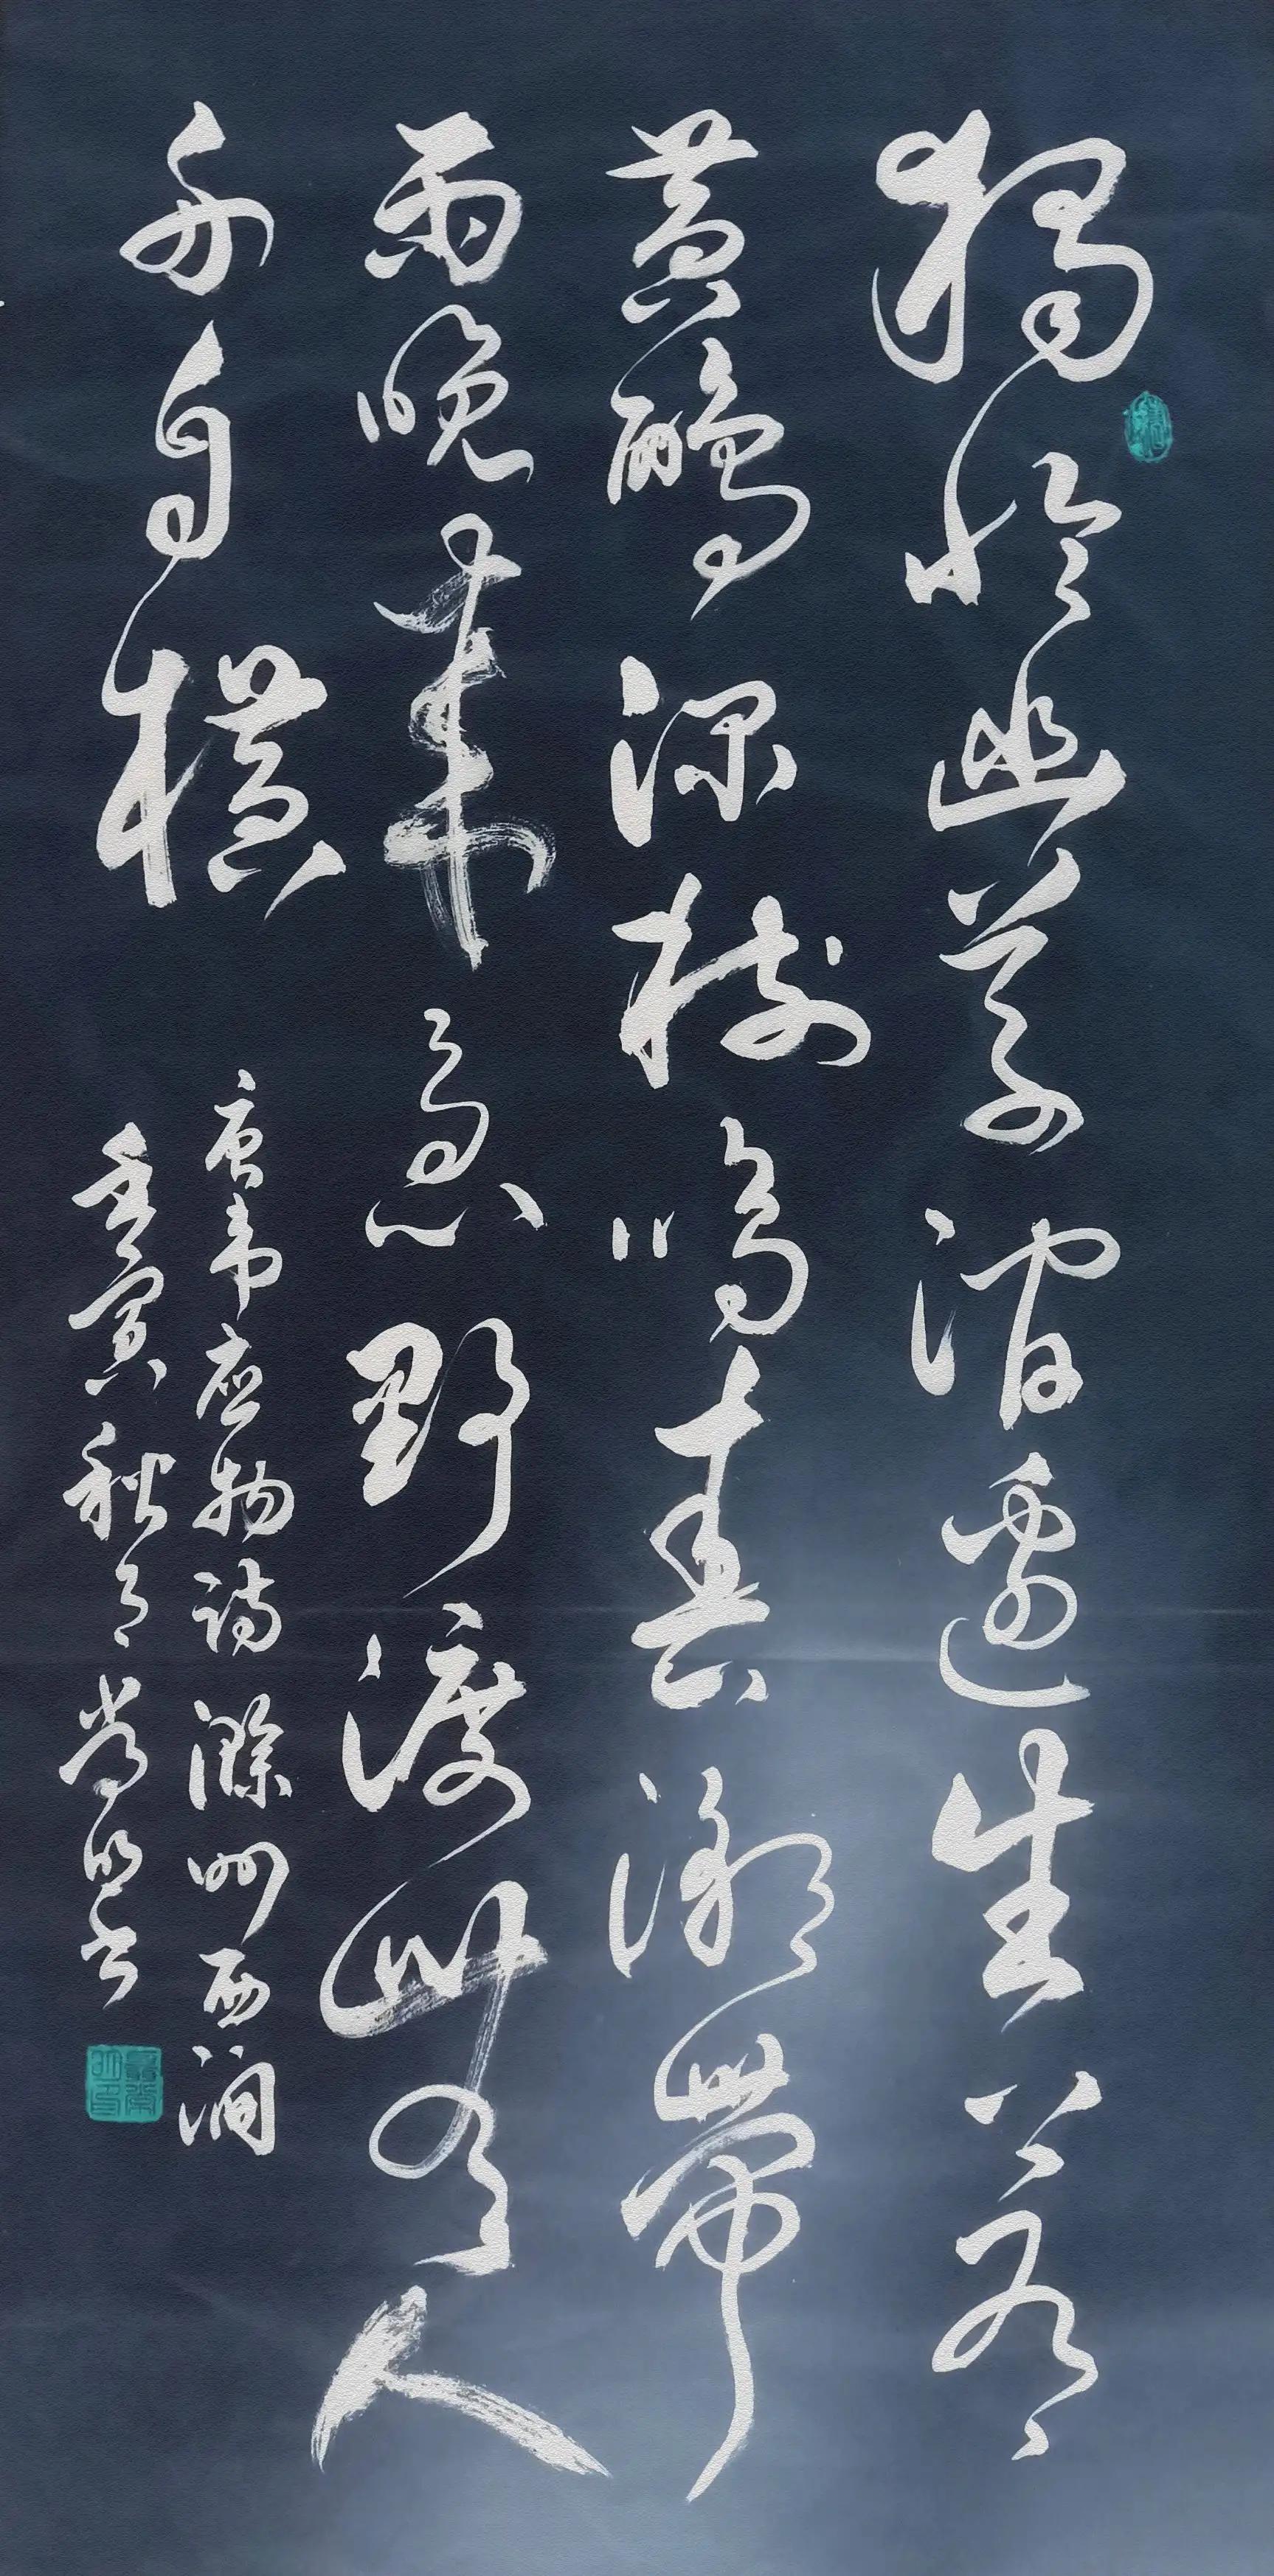 獨怜幽草澗邊生上有
黃鸝深樹鳴春潮帶
雨晚來急野渡無人
舟自橫
唐韋應物詩滁州西澗
寅秋月尚書